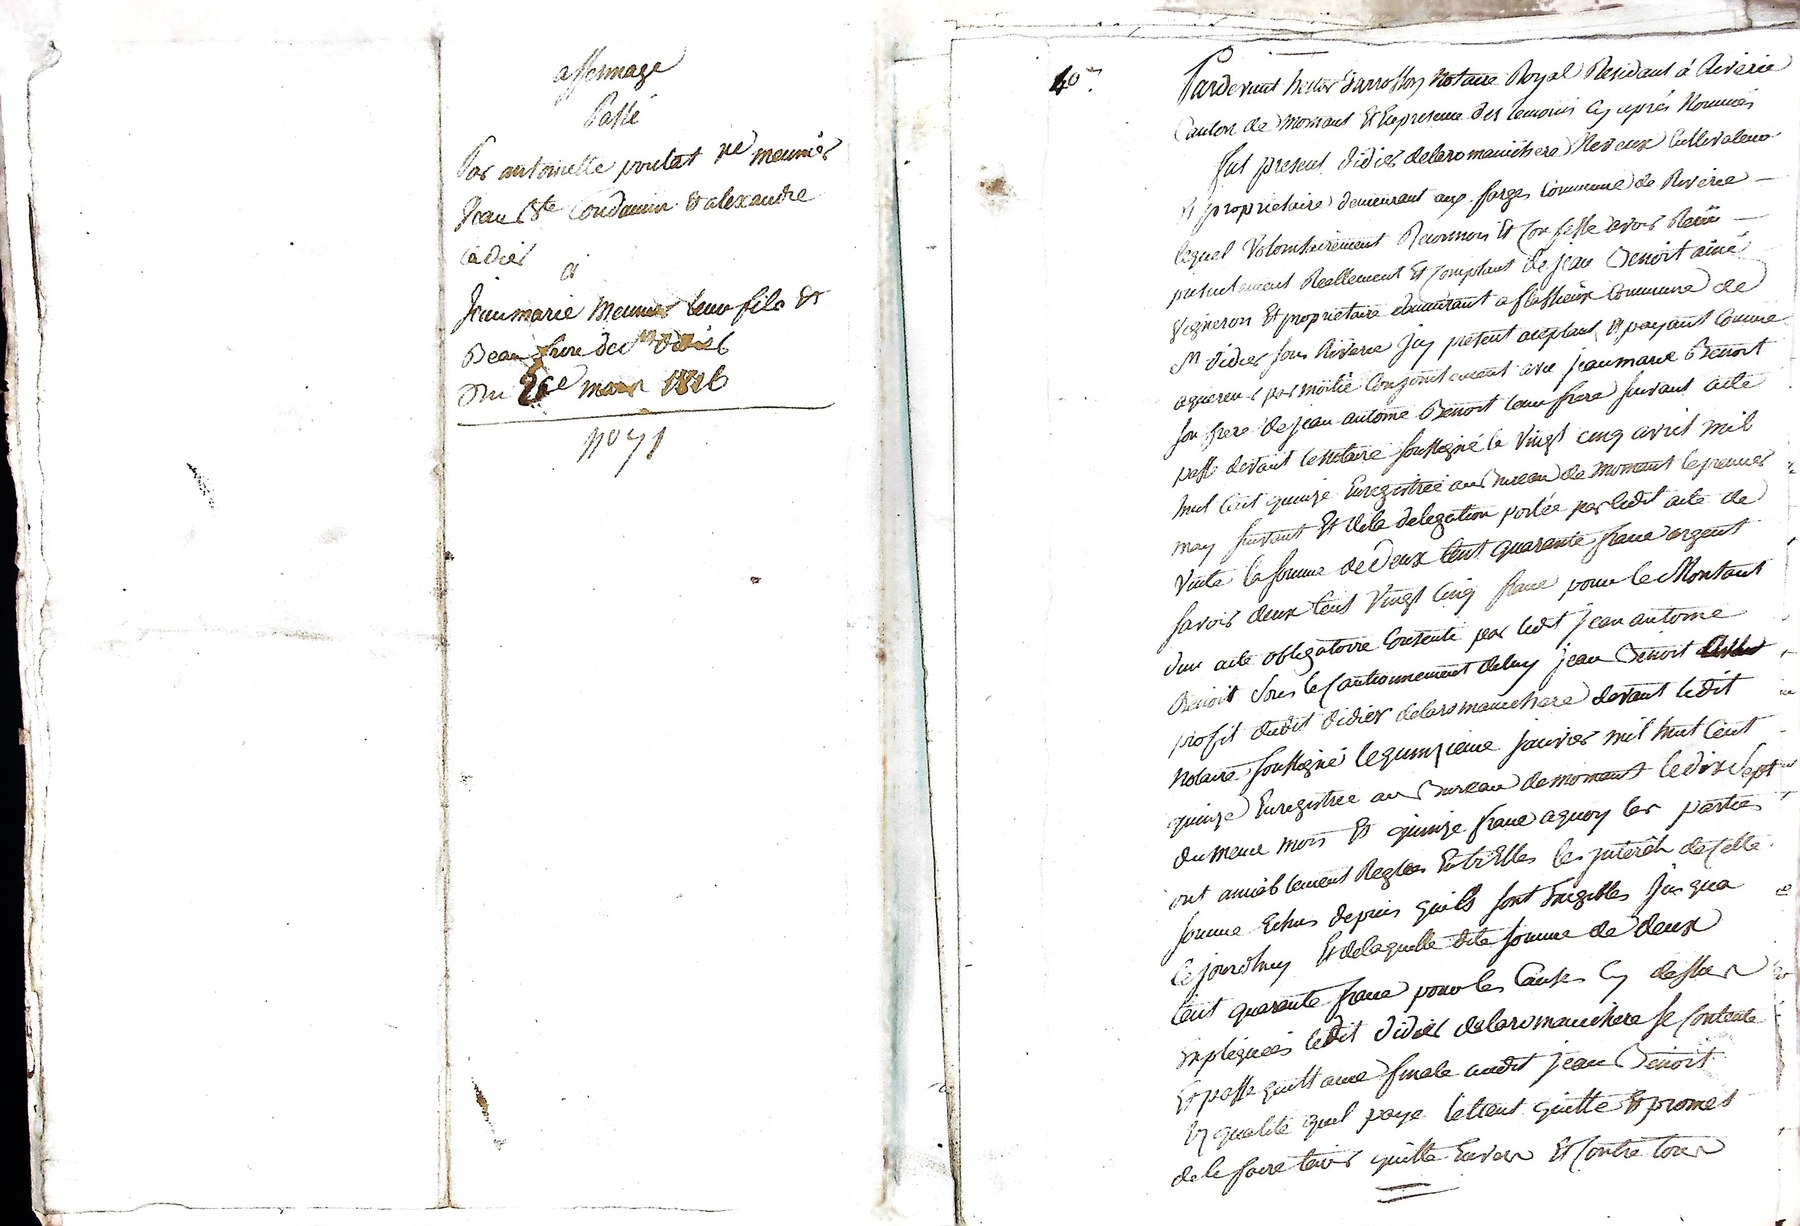 affermage
Passé
Par antoinette poulat ve meunier
Jean Bte Condamin et alexandre
Cadier
a
Jean marie Meunier leur fils et
Beau frere des
Du 26e mars 1816
No 71
40
Pardevant notaire Royal Residant a Riverie
Canton de Mornant Et En presence des temoins Cy après Nommés
fut present didier delaromanichere Neveux Cultivateur
Et proprietaire demeurant aux forges Commune de Riverie
lequel Volontairement Reconnois Et Confesse avoir Recu
presentement Reellement Et Comptant de Jean Benoit ainé
Vigneron Et proprietaire demeurant a flassieux Commune de
St didier sous Riverie Jcy present acceptant et payant Comme
aquereur par moitié Conjointement avec Jean marie Benoit
son frere de Jean antoine Benoit leur frere suivant acte
passé devant le Notaire soussigné le Vingt cinq avril mil
huit Cent quinze Enregistrée au Bureau de mornant le premier
may suivant Et de la delegation portée par ledit acte de
Vente la somme de Deux Cent quarante franc argent
savoir deux Cent Vingt Cinq franc pour le Montant
d'un acte obligatoire Consenti par ledit Jean antoine
Benoit sous le Cautionnement deluy Jean Benoit
profit dudit didier delaromanichere devant ledit
Notaire soussigné le quinzieme Janvier mil huit Cent
quinze Enregistrée au Bureau de mornant le dix sept
du meme mois Et quinze franc aquoy les parties
ont amiablement Reglees Entr'Elles les jnterêt de Celle
somme Echus depuis quils sont Exigibles Jusqua
Ce jourdhuy Et de laquelle dite somme de deux
Cent quarante franc pour les Causes Cy dessus
Expliquées ledit didier delaromanichere se Contente
Et passe quittance finale audit Jean Benoit
En qualité quil paye letient quitte Et promet
de le faire tenir quitte Envers Et Contre tous